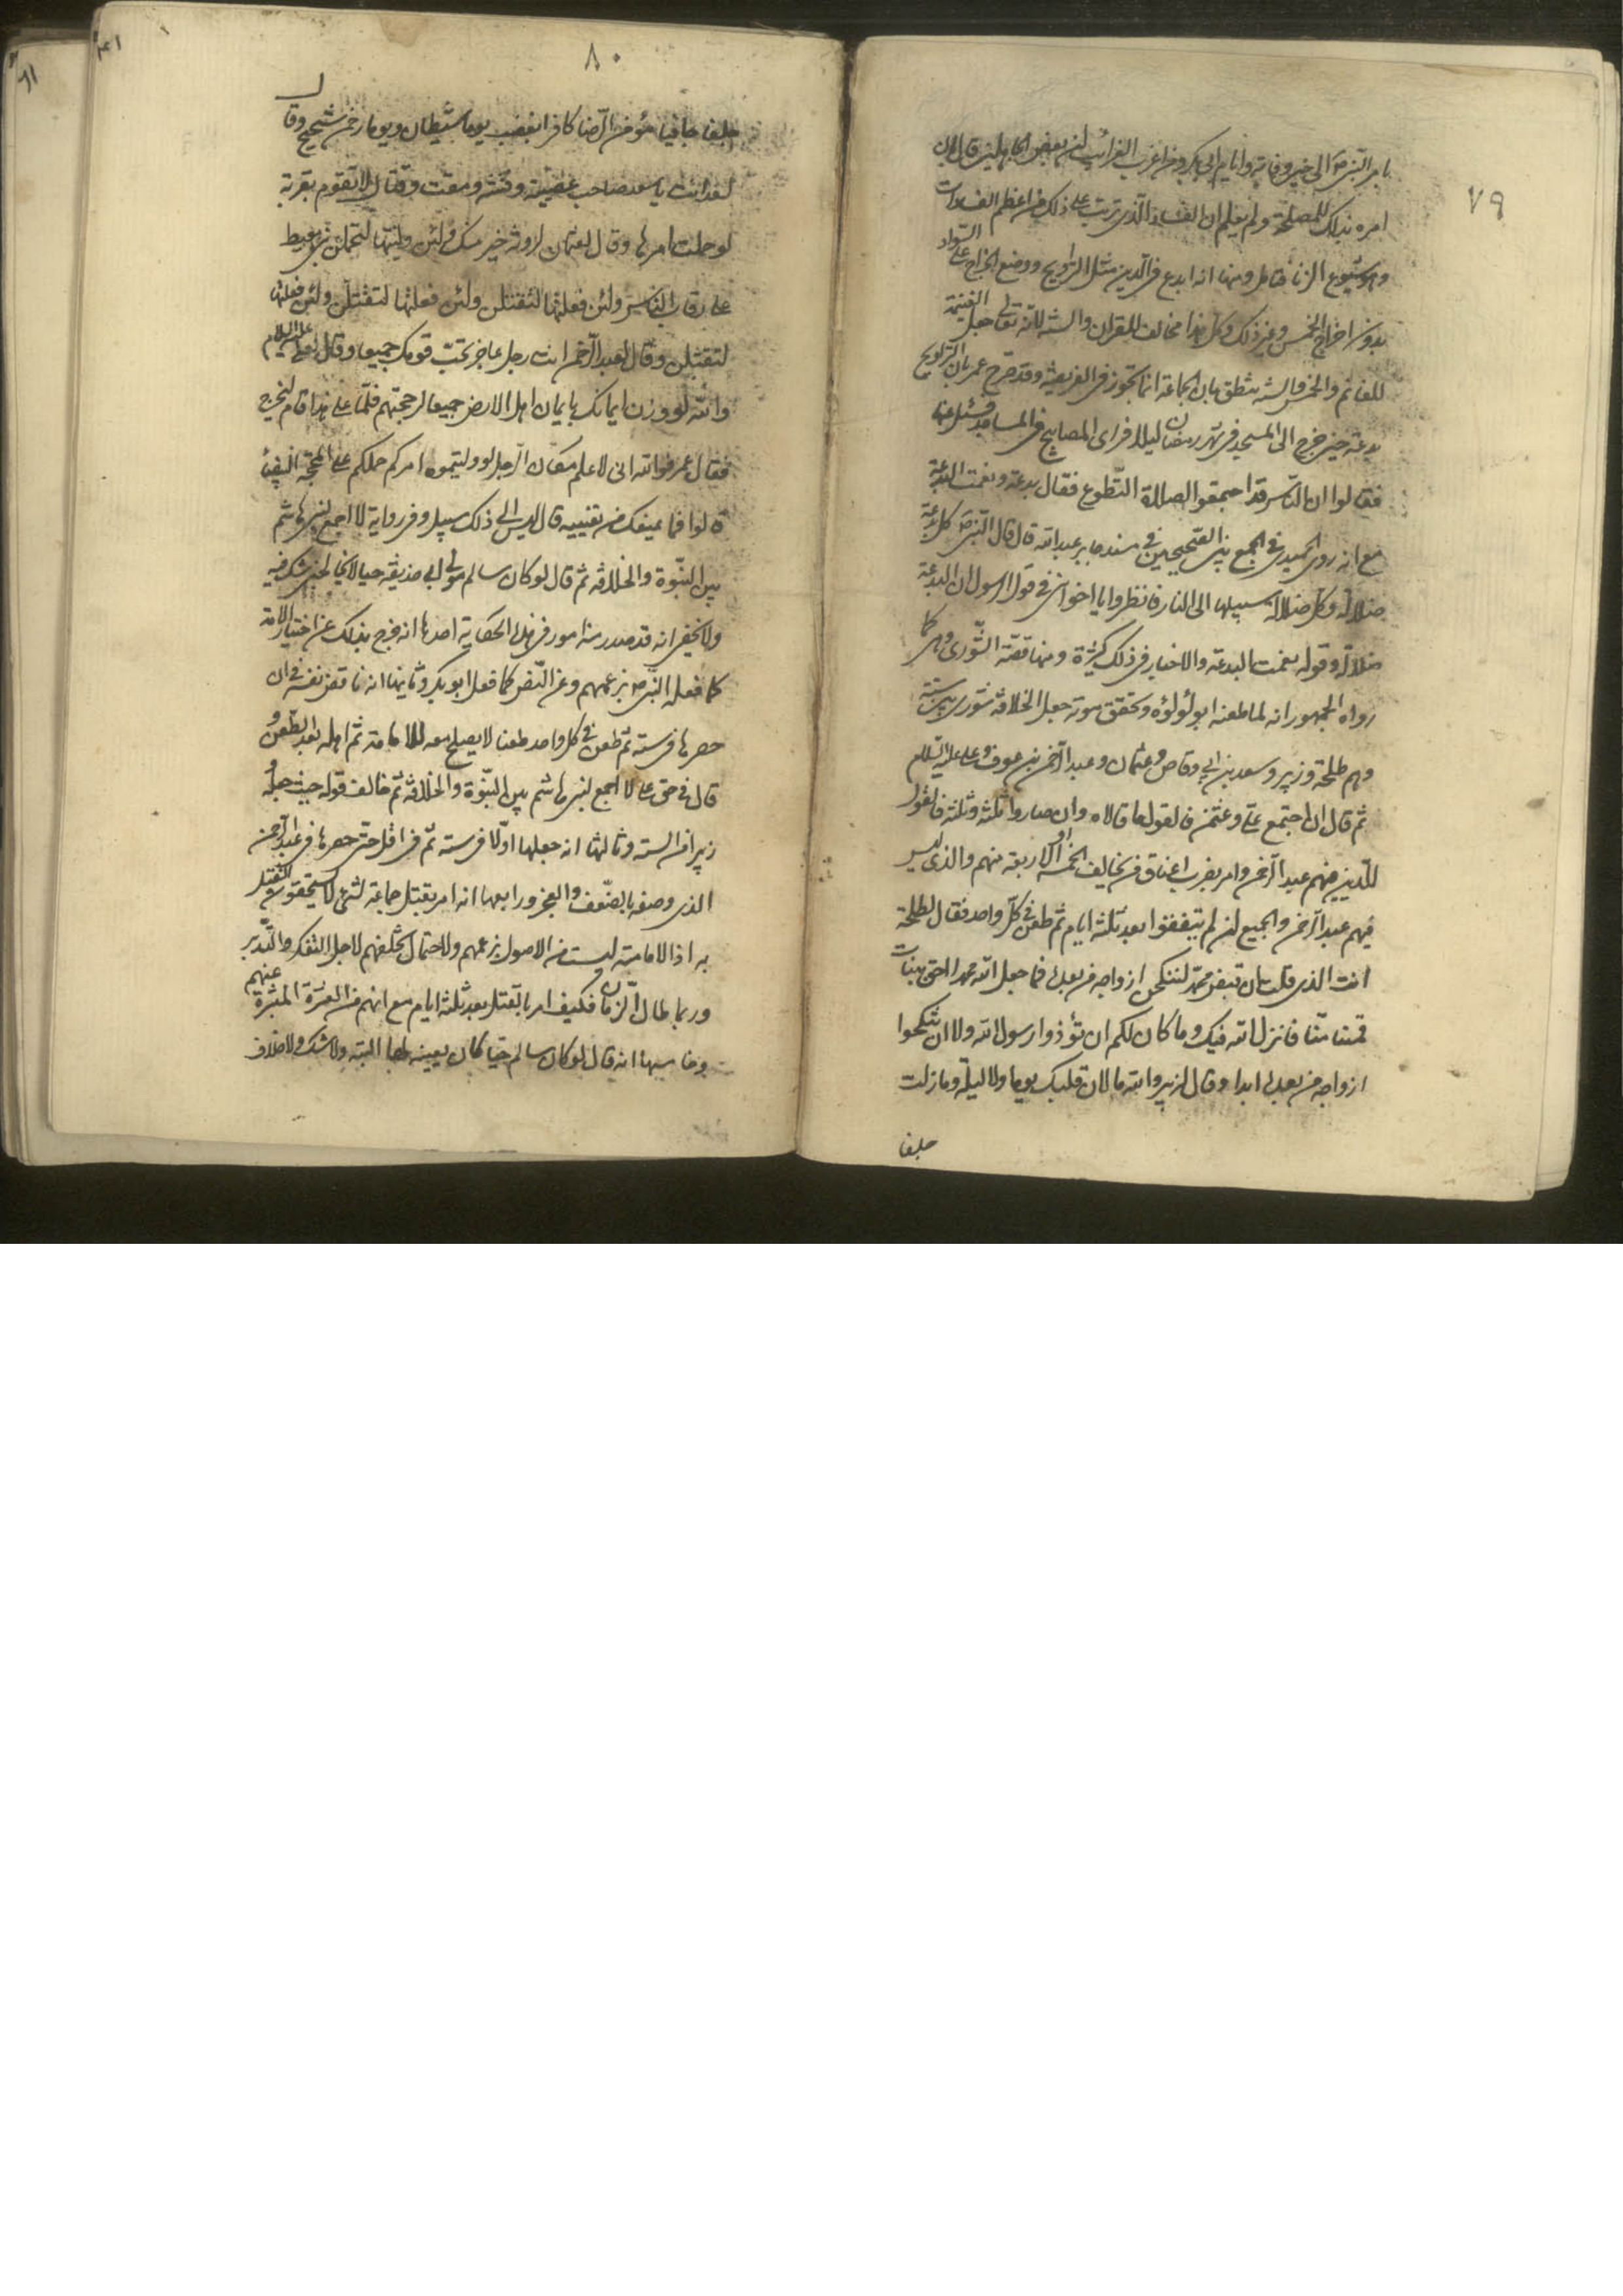 ٧٩
بامر النبى ص الى حين وفاته وايام ابى بكر ومن اغرب الغرائب ان بعض قال ان
امره بذلك للمصلحة ولم يعلم ان الفساد الذى ترتب على ذلك من اعظم الفسادات
وهو شيوع الزنا فتامل ومنها انه ابدع فى الدين مثل التراويح ووضع الخراج على السواد
بدون اخراج الخمس وغير ذلك وكل هذا مخالف للقران والسنة لانه تعالى جعل الغنيمة
للغانم والخمس والسنة ينطق بان الجماعة انما تجوز فى الفريضة وقد صرح عمر بان التراويح
بدعة حين خرج الى المسجد فى شهر رمضان ليلا فراى المصابيح فى المساجد فسئل عنها
فقالوا ان الناس قد اجتمعوا لصلاة التطوع فقال بدعة ونعمت البدعة
مع انه روى الحميدى فى الجمع بين الصحيحين فى مسند جابر بن عبد الله قال قال النبى ص كل بدعة
ضلالة وكل ضلالة سبيلها الى النار فانظروا يا اخوانى فى قول الرسول ان البدعة
ضلالة وقوله نعمت البدعة والاخبار فى ذلك كثيرة ومنها قصة الشورى وهى كما
رواه الجمهور انه لما طعنه ابو لؤلؤه وتحقق موته جعل الخلافة شورى بين ستة
وهم طلحة وزبير وسعد بن ابى وقاص وعثمان وعبد الرحمن بن عوف وعلى عليه السلام
ثم قال ان اجتمع على وعثمن فالقول ما قالاه وان صاروا ثلثة وثلثة فالقول
للذين فيهم عبد الرحمن وامر بضرب اعناق من يخالف الخمسة او الاربعة منهم والذى ليس
فيهم عبد الرحمن والجميع ان لم يتفقوا بعد ثلثة ايام ثم طعن فى كل واحد فقال لطلحة
انت الذى قلت ان قبض محمد لننكحن ازواجه من بعده فما جعل الله محمد احق ببنات
عمنا منا فانزل الله فيك وما كان لكم ان تؤذوا رسول الله ولا ان تنكحوا
ازواجه من بعده ابدا وقال لزبير والله ما لان قلبك يوما ولا ليلة وما زلت
جلفا
٨٠
جلفا جافيا مؤمن الرضا كافر الغضب يوما شيطان ويوما رحمن شحيح وقال
لسعد انت يا سعد صاحب عصبية وفتنة ومقت وقتال لا تقوم بقرية
لو حملت امرها وقال لعثمان لروثة خير منك ولئن وليتها لتحملن بنى معيط
على رقاب الناس ولئن فعلتها لتقتلن ولئن فعلتها لتقتلن ولئن فعلتها
لتقتلن وقال لعبد الرحمن انت رجل عاجز تحب قومك جميعا وقال لعلى عليه السلام
والله لو وزن ايمانك بايمان اهل الارض جميعا لرجحتهم فلما على هذا قام ليخرج
فقال عمر والله انى لاعلم مكان الرجل لو وليتموه امركم حملكم على المحجة البيضاء
قالوا فما يمنعك من تعيينه قال ليس الى ذلك سبيل وفى رواية لا اجمع لبنى هاشم
بين النبوة والخلافة ثم قال لو كان سالم مولى ابى حذيفة حيا لا يخالجنى شك فيه
ولا يخفى انه قد صدر منه امور فى هذه الحكاية احدها انه خرج بذلك عن اختيار الامة
كما فعله النبى ص بزعمهم وعن النص كما فعل ابو بكر وثانيها انه ناقض نفسه فى ان
حصرها فى ستة ثم طعن فى كل واحد طعنا لا يصلح معه للامامة ثم اهله بعد الطعن و
قال فى حق على لا اجمع لبنى هاشم بين النبوة والخلافة ثم خالف قوله حيث جعله و
زبير من الستة وثالثها انه جعلها اولا فى ستة ثم فى اقل حتى حصرها فى عبد الرحمن
الذى وصفه بالضعف والعجز ورابعها انه امر بقتل جماعة لشئ لا يستحقون القتل
به اذ الامامة ليست من الاصول بزعمهم ولاحتمال تخلفهم لاجل التفكر والتدبر
وربما طال الزمان فكيف امر بالقتل بعد ثلثة ايام مع انهم من العشرة المبشرة عندهم
وخامسها انه قال لو كان سالم حيا كان يعينه لها البته ولا شك ولا خلاف